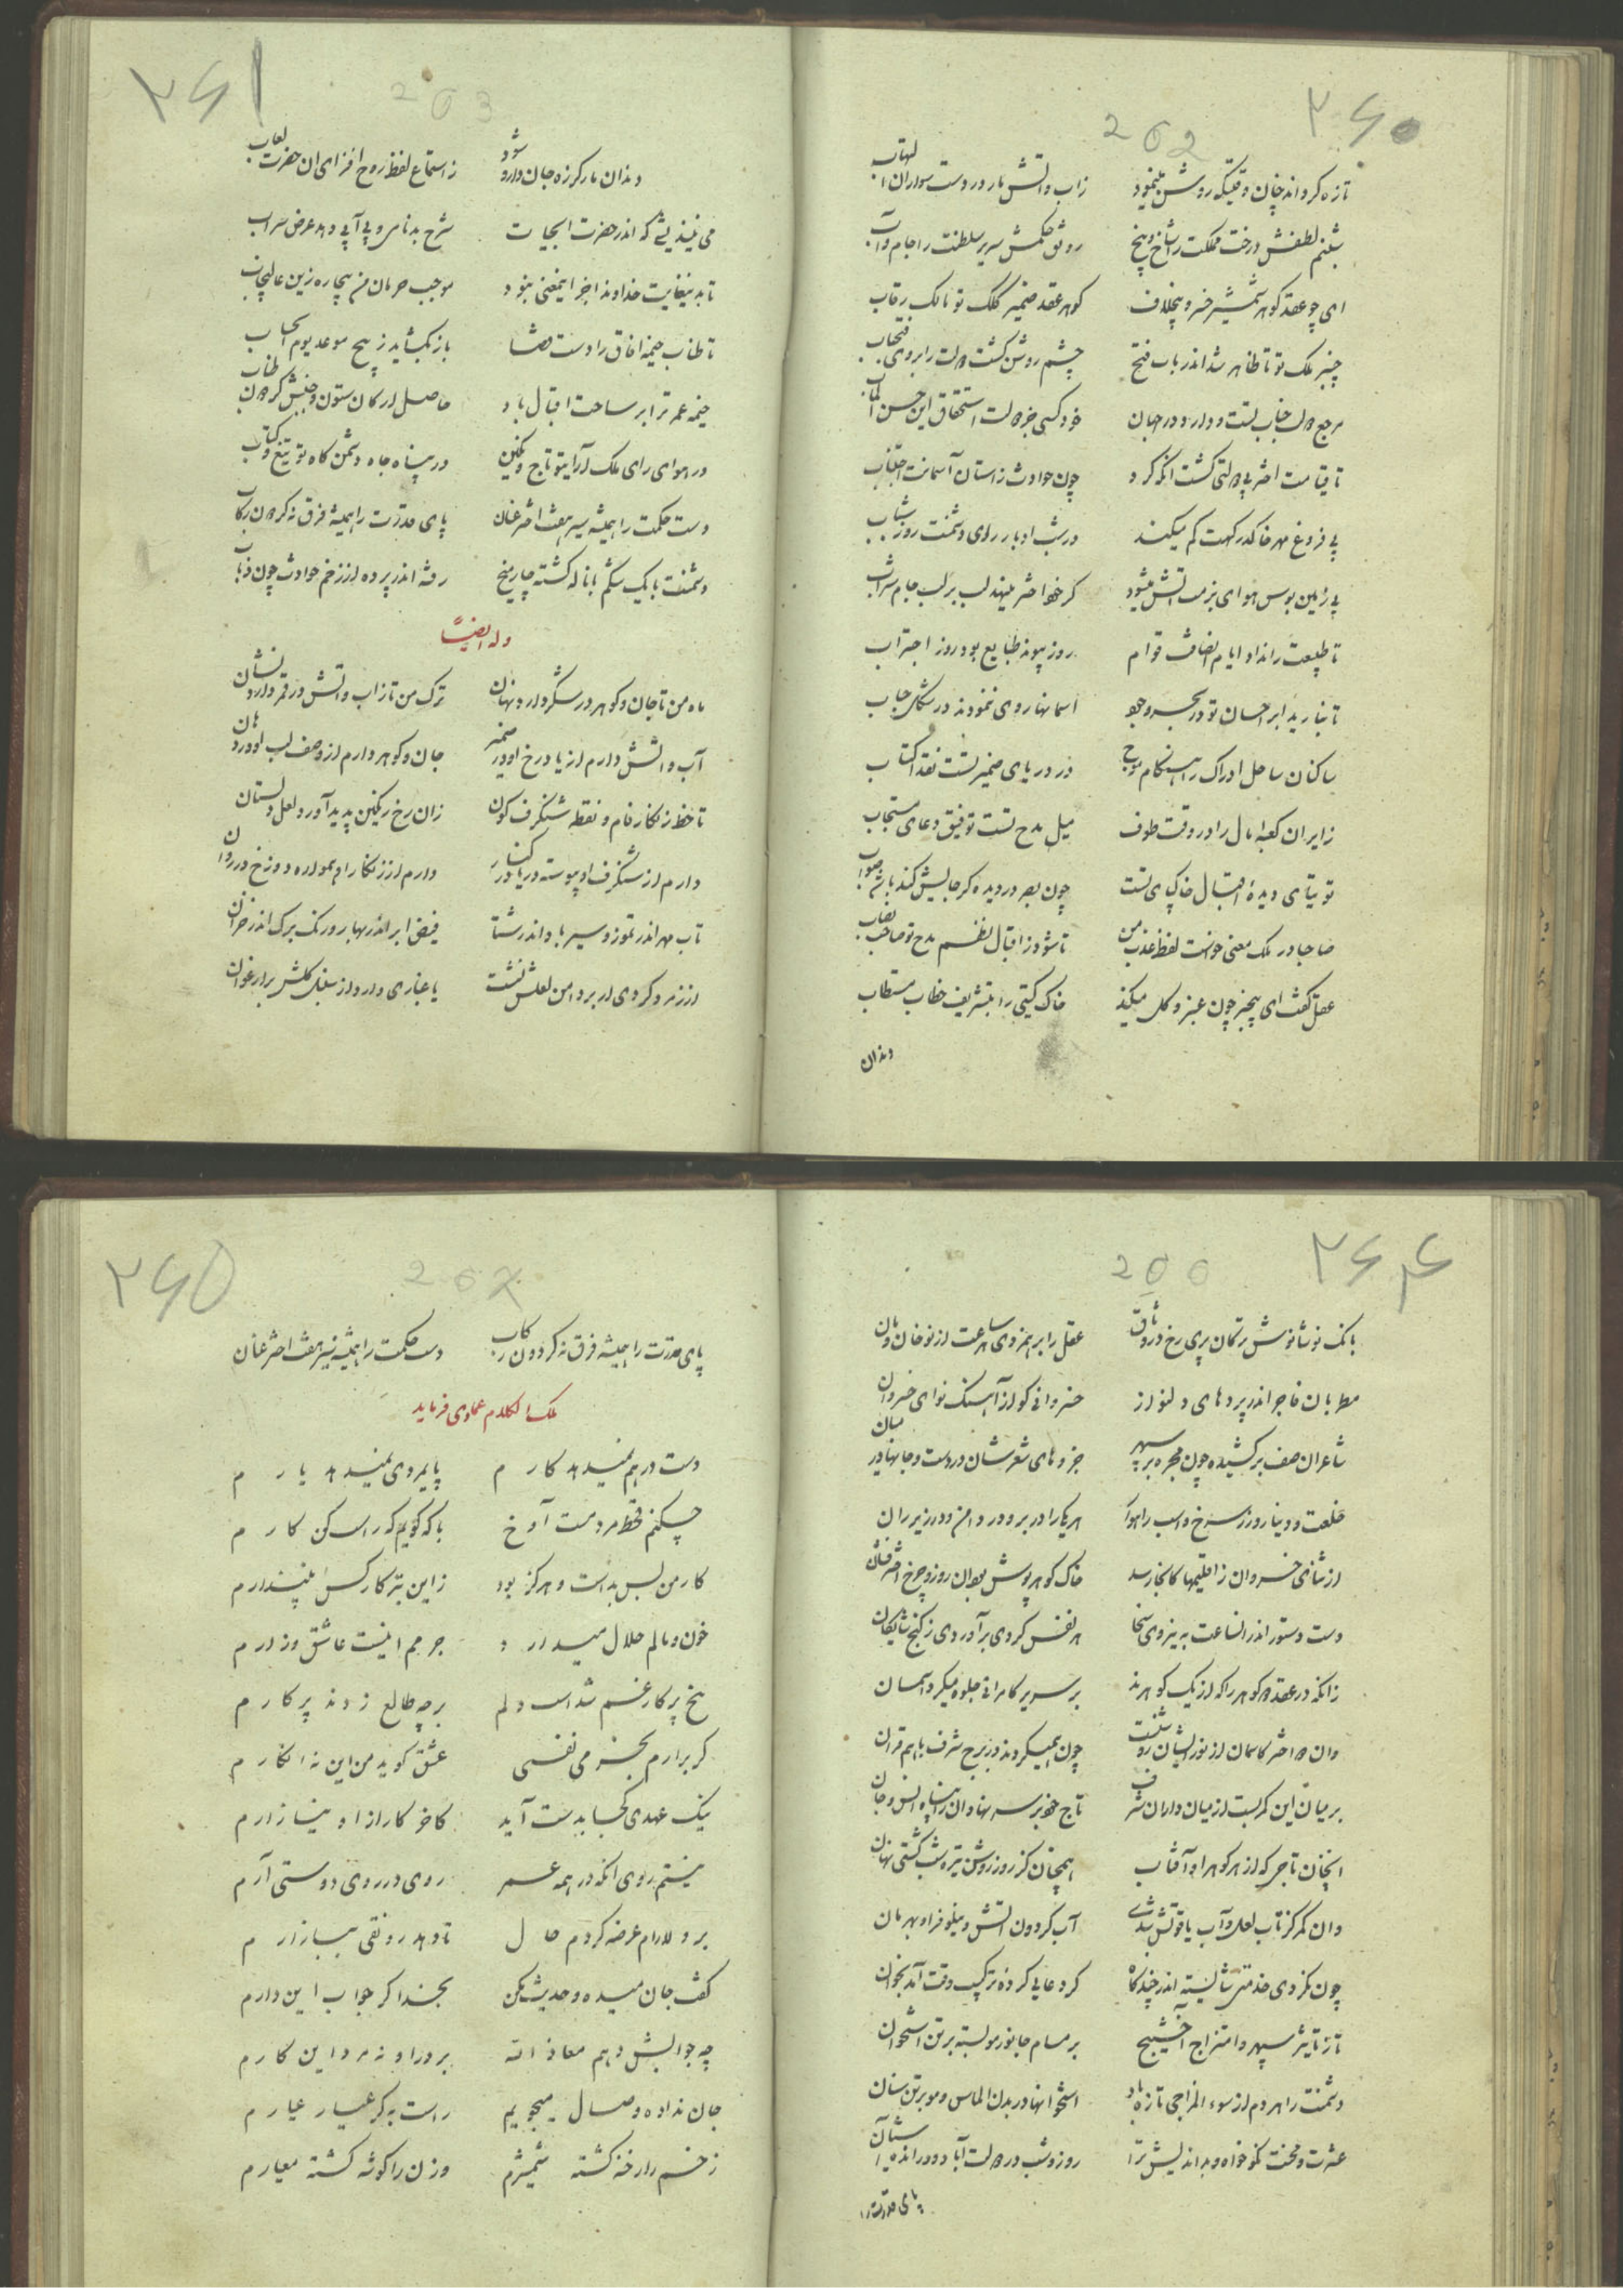 ۲۶۰
202
تازه کرداند چنان وقتیکه روشن مینمود زاب و اتش بار در دست سواران التهاب
شبنم لطفش درخت مملکت را شاخ و بیخ رونق حکمش سریر سلطنت را جام و آب
ای چو عقد گوهر شمشیر خسرو بیخلاف گوهر عقد ضمیر کلک تو مالک رقاب
چنبر ملک تو تا ظاهر شد اندر باب فتح چشم روشن گشت دولت را بروی فتحباب
مرجع دولت جناب تست و دارد در جهان خود کسی جز دولت استحقاق این حسن المآب
تا قیامت اختر بی دولتی گشت آنکه کرد چون حوادث زاستان آسمانت اجتناب
بی فروغ مهر خاک درکهت کم میکند در شب ادبار روی دشمنت روز شباب
بی زمین بوس هوای بزمت اتش میشود کر خود اختر مینهد لب بر لب جام شراب
تا طبیعت را نداد ایام انصافت قوام روز پیوند طبایع بود روز اجتراب
تا نبارید ابر احسان تو در بحر وجود اسمانها روی ننمودند در شکل حباب
ساکنان ساحل ادراک را هنگام موج در دریای ضمیر تست نقد اکتساب
زایران کعبه امال را در وقت طوف میل مدح تست توفیق دعای مستجاب
توتیای دیدهٔ اقبال خاکپای تست چون بصر در دیده کر جایش کند باشد صواب
صاحبا در ملک معنی خواست لفظ عذب من تا شود ز اقبال نظم مدح تو صاحب نصاب
عقل گفت ای بیخبر چون عنبر و گل میکند خاک گیتی را بتشریف خطاب مستطاب
دندان
۲۶۱
203
دندان مار کرزه جان دارو شود ز استماع لفظ روح افزای ان حضرت لعاب
می نیندیشی که اندر حضرت ابحیات شرح بدنامی و بی آبی دهد عرض سراب
تا بدینغایت خداوندا جز اینمعنی نبود موجب حرمان من بیچاره زین عالیجناب
تا طناب خیمه افاق را دست قضا باز نکشاید ز میخ موعد یوم الحساب
خیمه عمر ترا بر ساحت اقبال باد حاصل ارکان ستون و جنبش گردون طناب
در هوای رای ملک آرای تو تاج و نکین در پناه جاه دشمن کاه تو تیغ و کتاب
دست حکمت را همیشه سیر هفت اختر عنان پای قدرت را همیشه فرق نه گردون رکاب
دشمنت با یک شکم با ناله گشته چار میخ رفته اندر پرده از زخم حوادث چون رباب
وله ایضاً
ماه من تا جان و گوهر در شکر دارد نهان ترک من تا زاب و اتش در قمر دارد نشان
آب و اتش دارم از یاد رخ او در ضمیر جان و گوهر دارم از وصف لب او در دهان
تا خط زنکار فام و نقطه شنکرف کون زان رخ رنکین پدید آورد لعل دلستان
دارم از شنکرف او پیوسته دریا در کنار دارم از زنکار او همواره دوزخ در روان
تاب مهر اندر تموز و سیر باد اندر شتا فیض ابر اندر بهار و رنک برک اندر خزان
از زمرد کردی ار بر دامن لعلش نشست یا غباری دارد از سنبل گلش بر ارغوان
۲۶۴
200
بانک نوشانوش ترکان پری رخ در وثاق عقل را بر هم زدی ساعت از نو خان و مان
مطربان فاجر اندر پردهای دلنواز خسروانی کو از آهنک نوای خسروان
شاعران صف برکشیده چون مجره بر سپهر جزوهای شعرشان در دست و جانها در میان
خلعت و دینار و زر سرخ و اسب راهوار هر یکی را در بر و در دامن و در زیر ران
از ثنای خسروان ز اقلیمها کانجا رسد خاک گوهر پوش بود ان روز و چرخ اختر فشان
دست دستور اندر انساعت به نیروی سخا هر نفس کردی برآوردی ز گنج شایگان
زانکه در عقد دو گوهر را که از یک گوهرند بر سریر کامرانی جلوه میکرد اسمان
وان دو اختر کاسمان از نور ایشان روشنست چون همیکردند در برج شرف باهم قران
بر میان این کمر بست از میان داران شرف تاج خود بر سر نهاد ان را پناه انس و جان
انچنان تاجی که از هر گوهر او آفتاب همچنان کز روز روشن تیره شب گشتی نهان
وان کمر کز تاب لعل و آب یاقوتش شدی آب گردون اتش و نیلوفر او بهرمان
چون نکردی خدمتی شایسته اندر چندگاه کرد عایی کردهٔ ترکیب وقت آمد بخوان
تا ز تاثیر سپهر و امتزاج آخشیج بر مسام جانور مو بسته بر تن استخوان
دشمنت را هر دم از سوء المزاجی تازه باد استخوانها در بدن الماس و مو بر تن سنان
عشرت و محنت نکوخواه و بد اندیش ترا روز و شب در دولت آباد و در انده‌ستان
پای قدرت را
۲۶۵
پای قدرت را همیشه فرق نه گردون رکاب دست حکمت را همیشه سیر هفت اختر عنان
ملک الکلام عمادی فرماید
دست در هم نمیدهد کارم پایمردی نمیدهد یارم
چکنم قحط مردمست آوخ با که گویم که راست کن کارم
کار من بس بدست و هرگز بود زاین بتر کار کس نپندارم
خون و مالم حلال میدارد جرمم اینست عاشق و زارم
نخ پرکار غم شداست دلم بر چه طالع زدند پرکارم
گر برارم بخرمی نفسی عشق گوید من این نه انگارم
نیک عهدی کجا بدست آید کاخر کار ازاو نیازارم
نیستم روی انکه در همه عمر روی در روی دوستی آرم
بر دلارام عرضه کردم حال تا دهد رونقی ببازارم
گفت جان میده و حدیث مکن بخدا گر جواب این دارم
چه جوابش دهم معاذ الله برد او نه مرد این کارم
جان نداده وصال میجویم راست به گر عیار عیارم
زخم را رخنه گشته شمشیرم وزن را گوشه گشته معیارم